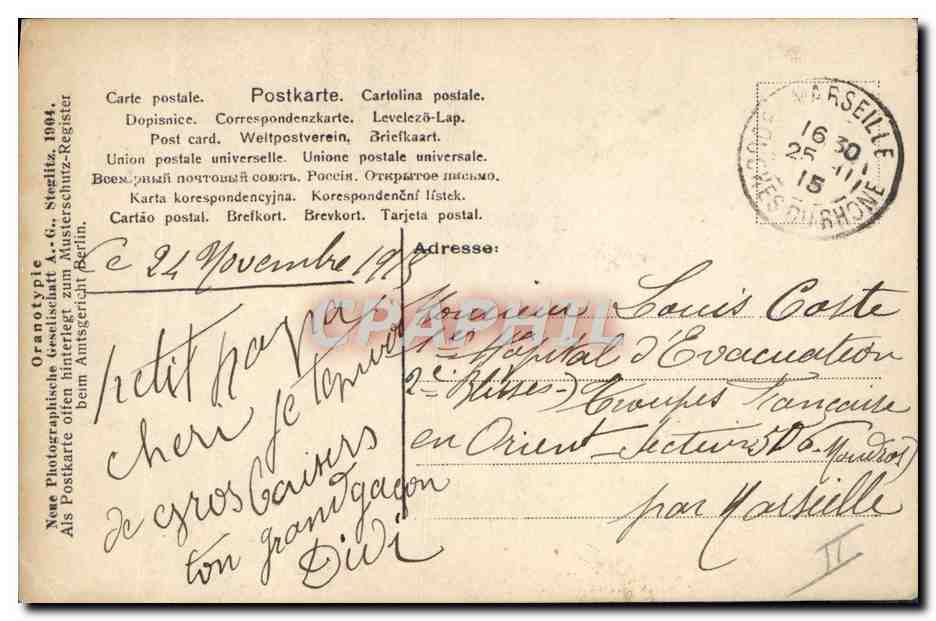 Carte postale. Postkarte. Cartolina postale.
Dopisnice. Correspondenzkarte. Levelező-Lap.
Post card. Weltpostverein. Briefkaart.
Union postale universelle. Unione postale universale.
Всемірный почтовый союзъ. Россія. Открытое письмо.
Karta korespondencyjna. Korespondenční lístek.
Cartão postal. Brefkort. Brevkort. Tarjeta postal.
MARSEILLE
16 30
25
15
BOUCHES DU RHONE
Oranotypie
Neue Photographische Gesellschaft A.-G., Steglitz. 1904.
Als Postkarte offen hinterlegt zum Musterschutz-Register
beim Amtsgericht Berlin.
Le 24 Novembre 1915
petit papa
cheri je t'envoi
de gros baisers
ton grand gaçon
Didi
Adresse:
Monsieur Louis Coste
Hôpital d'Evacuation
Troupes Française
en Orient Secteur 506 Moudros)
par Marseille
II
CPAPHIL